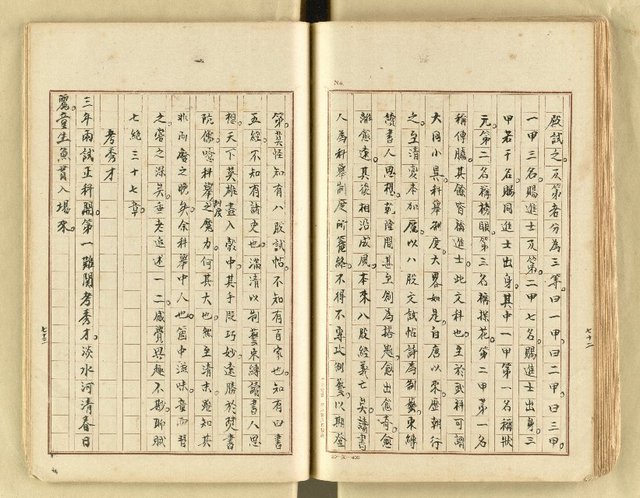 殿試之及第者分為三等曰一甲曰二甲曰三甲
一甲三名賜進士及第二甲七名賜進士出身三
甲若干名賜同進士出身其中一甲第一名稱狀
元第二名稱榜眼第三名稱探花第二甲第一名
稱傳臚其餘皆稱進士此文科也至於武科可謂
大同小異科舉制度大畧如是自唐以來歷朝行
之至清變本加厲以八股文試帖詩為制藝束縛
讀書人思想乾隆間甚至創為搭題愈出愈奇愈
離愈遠其後相沿成風本來八股經義亡矣讀書
人為科舉制度所籠絡不得不專攻制藝以期登
第莫怪知有八股試帖不知有百家也知有四書
五經不知有諸史也滿清以制藝束縛讀書人思
想天下英雄盡入彀中其手段巧妙遠勝於焚書
坑儒噫科舉制度之魔力何其大也無至清末雖知其
非而廢之晚矣余科舉中人也箇中滋味童而習
之窗之深矣垂老追述一二感覺興趣不尠聊賦
七絕三十七章
考秀才
三年兩試正科開第一難關考秀才淡水河清春日
麗童生魚貫入場來
七十二
七十三
No.